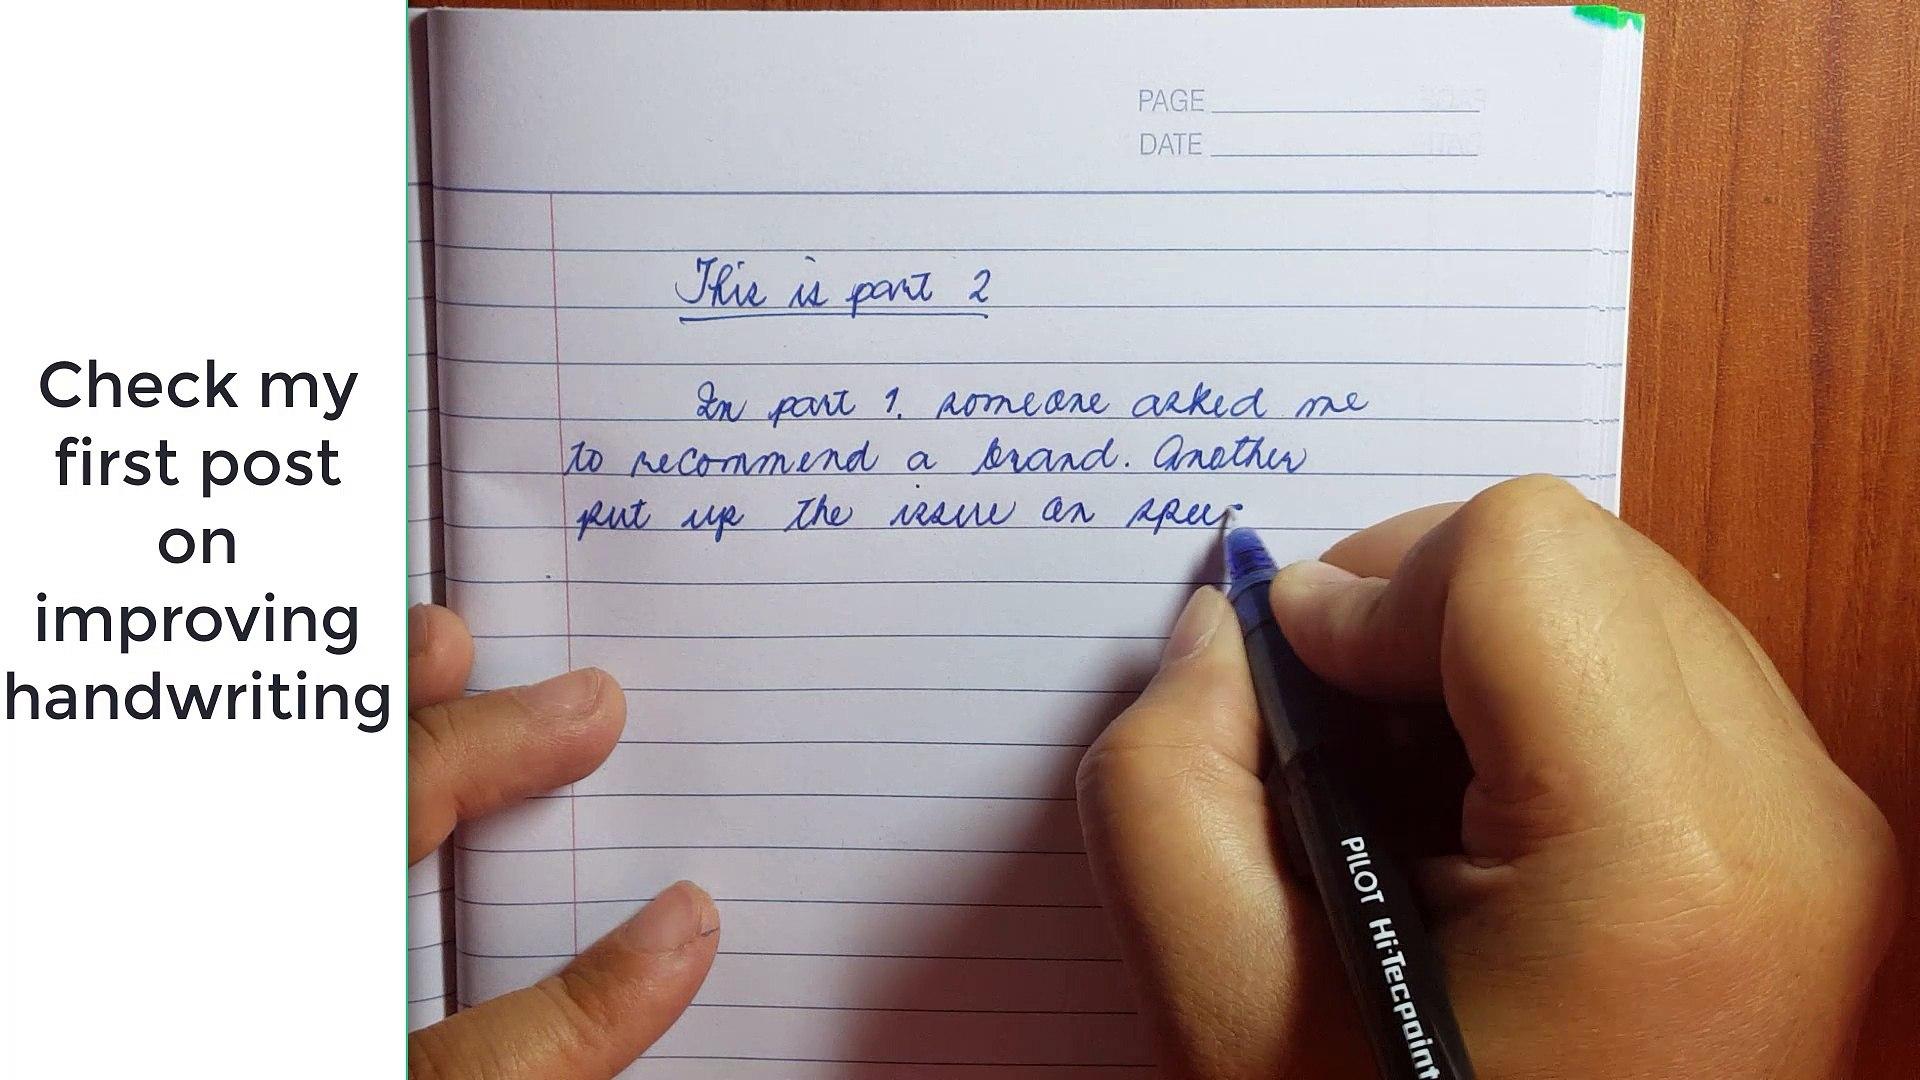 Check my
first post
on
improving
handwriting
PAGE
DATE
This is part 2
In part 1. someone asked me
to recommend a brand. Another
put up the issue on
PILOT Hi-Tecpoint